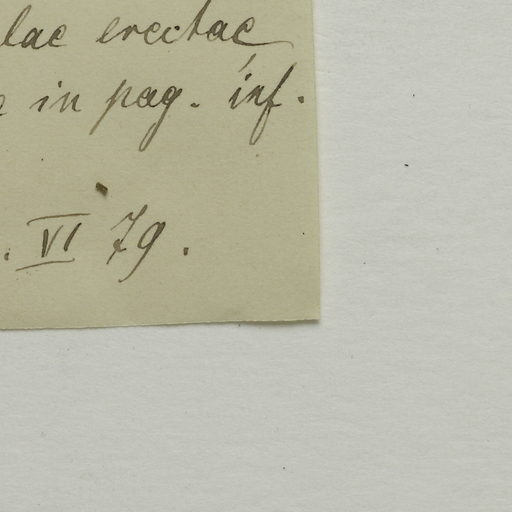 lae erectae
in pag. inf.
. VI 79.